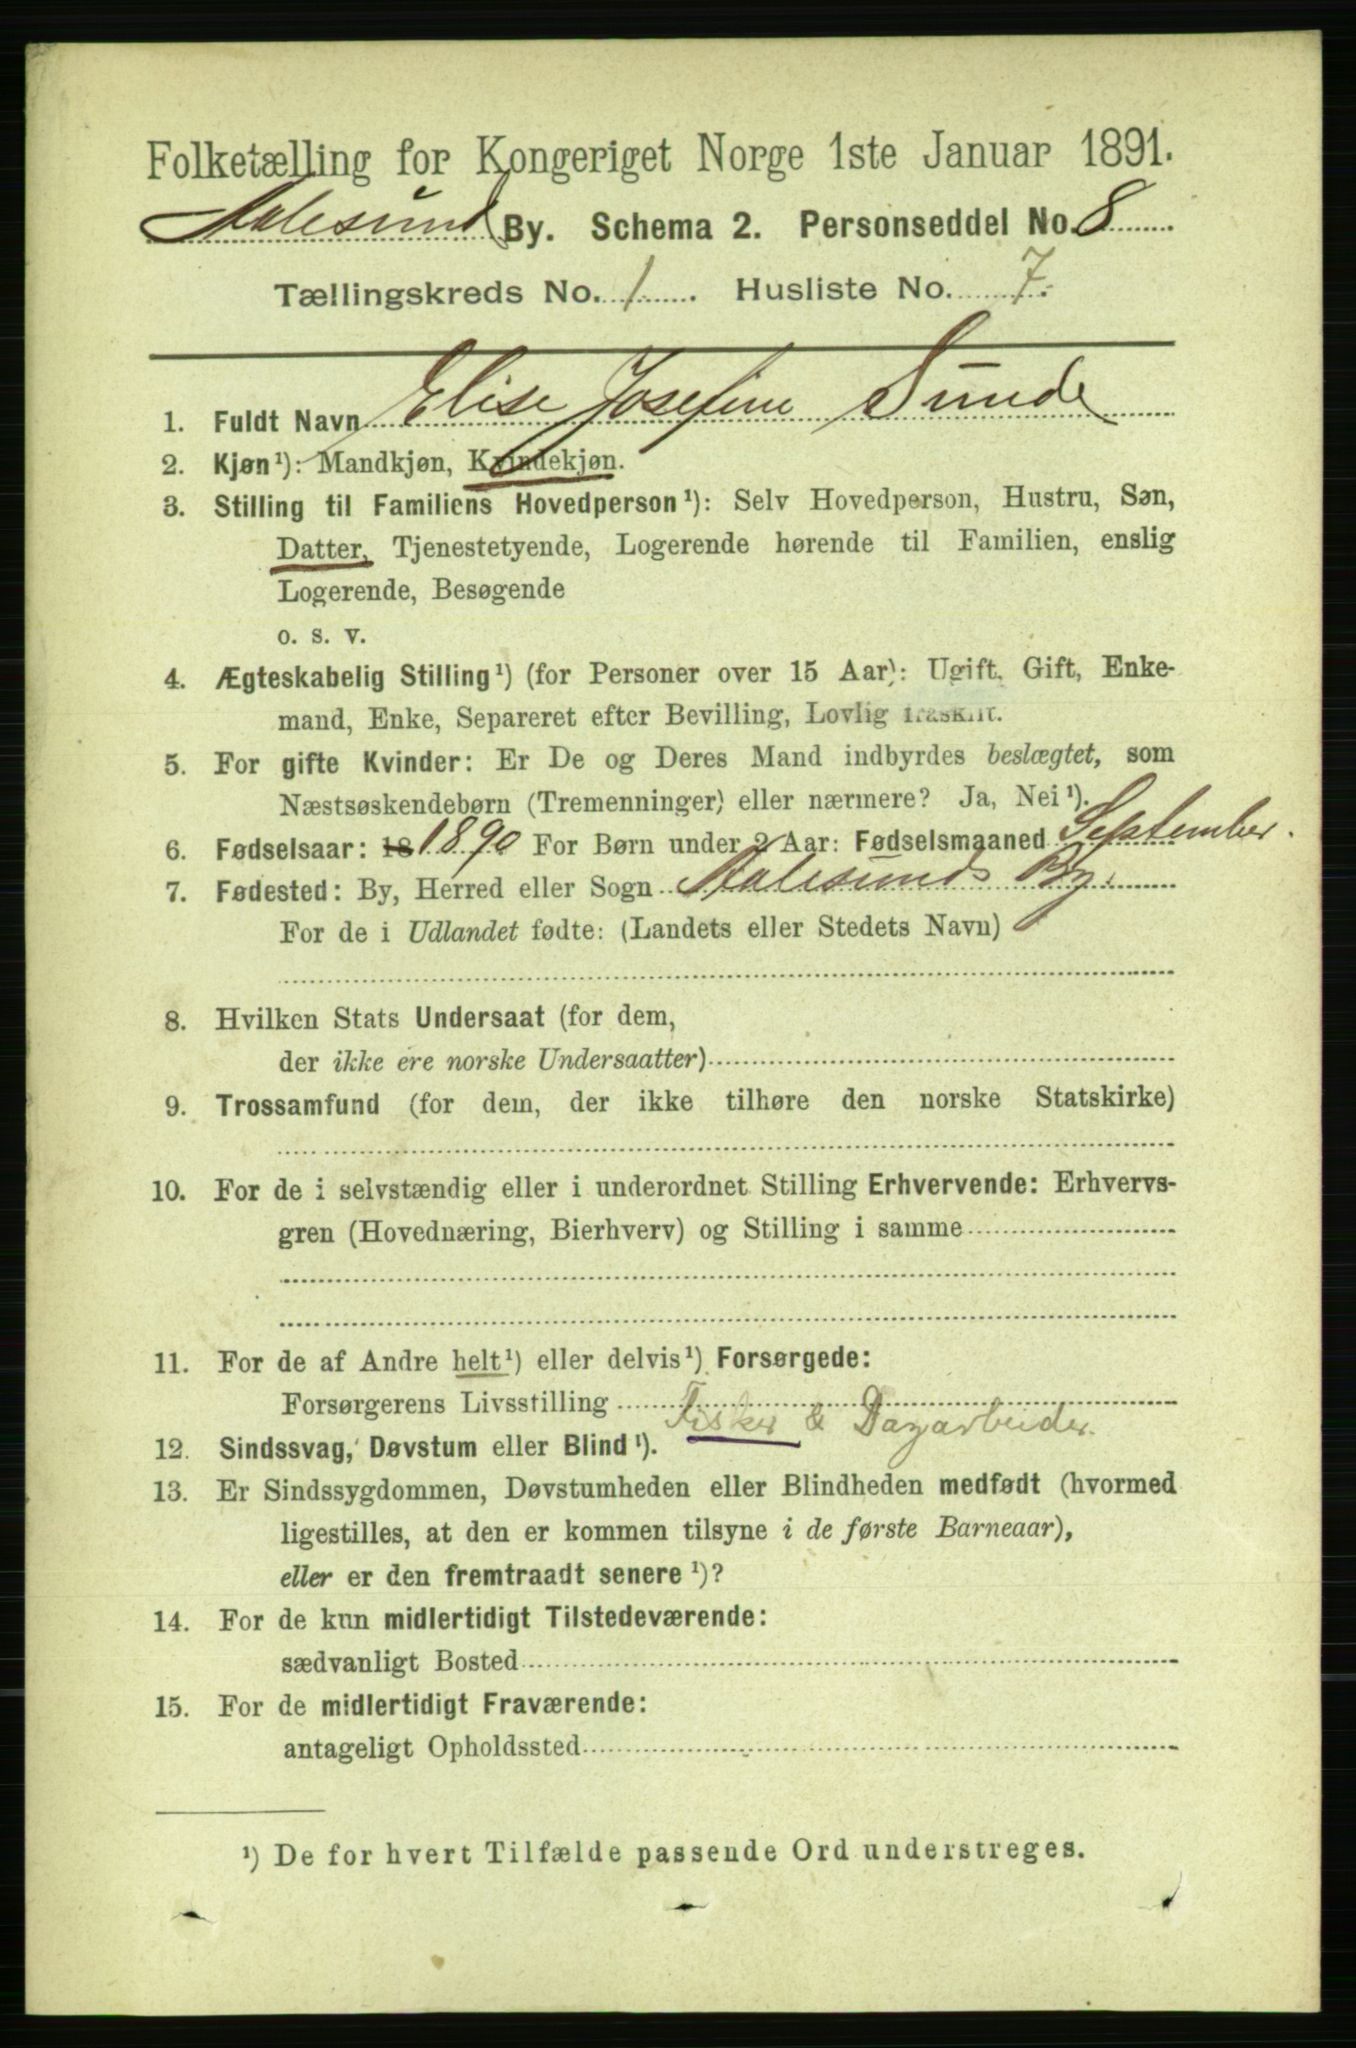 Folketælling for Kongeriget Norge 1ste Januar 1891.
Aalesund By. Schema 2. Personseddel No. 8
Tællingskreds No. 1. Husliste No. 7.
1. Fuldt Navn Elise Josefine Sunde
2. Kjøn ¹): Mandkjøn, Kvindekjøn.
3. Stilling til Familiens Hovedperson ¹): Selv Hovedperson, Hustru, Søn,
Datter, Tjenestetyende, Logerende hørende til Familien, enslig
Logerende, Besøgende
o. s. v.
4. Ægteskabelig Stilling ¹) (for Personer over 15 Aar): Ugift, Gift, Enke-
mand, Enke, Separeret efter Bevilling, Lovlig fraskilt.
5. For gifte Kvinder: Er De og Deres Mand indbyrdes beslægtet, som
Næstsøskendebørn (Tremenninger) eller nærmere? Ja, Nei ¹).
6. Fødselsaar: 18 1890 For Børn under 2 Aar: Fødselsmaaned September.
7. Fødested: By, Herred eller Sogn Aalesunds By.
For de i Udlandet fødte: (Landets eller Stedets Navn)
8. Hvilken Stats Undersaat (for dem,
der ikke ere norske Undersaatter)
9. Trossamfund (for dem, der ikke tilhøre den norske Statskirke)
10. For de i selvstændig eller i underordnet Stilling Erhvervende: Erhvervs-
gren (Hovednæring, Bierhverv) og Stilling i samme
11. For de af Andre helt ¹) eller delvis ¹) Forsørgede:
Forsørgerens Livsstilling Fisker & Dagarbeider.
12. Sindssvag, Døvstum eller Blind ¹).
13. Er Sindssygdommen, Døvstumheden eller Blindheden medfødt (hvormed
ligestilles, at den er kommen tilsyne i de første Barneaar),
eller er den fremtraadt senere ¹)?
14. For de kun midlertidigt Tilstedeværende:
sædvanligt Bosted
15. For de midlertidigt Fraværende:
antageligt Opholdssted
¹) De for hvert Tilfælde passende Ord understreges.